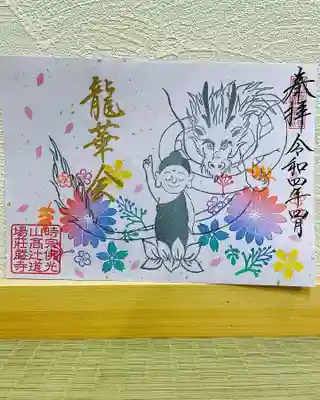 奉拝
令和四年四月
龍華会
時宗佛光
山高辻道
場荘厳寺